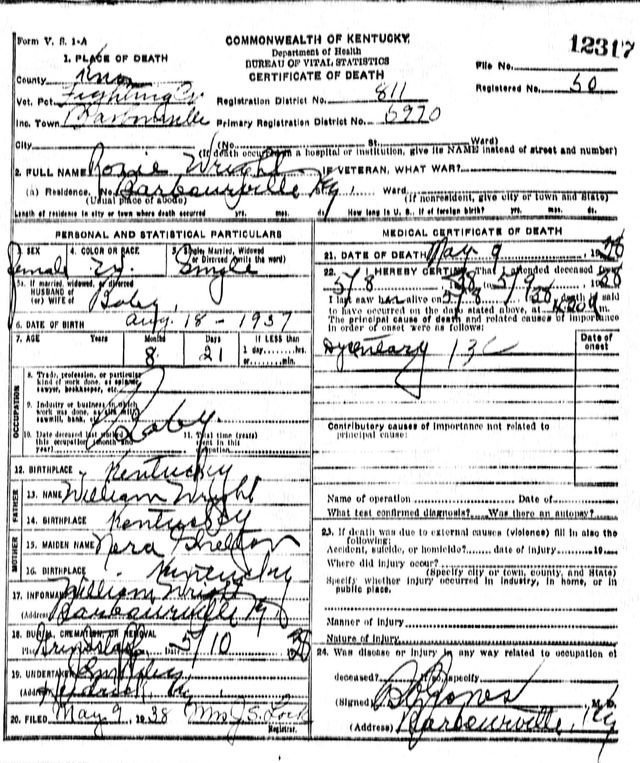 Form V. S. 1-A
COMMONWEALTH OF KENTUCKY
Department of Health
BUREAU OF VITAL STATISTICS
CERTIFICATE OF DEATH
12317
1. PLACE OF DEATH
County Knox
Vot. Pct. Fighting Cr
Inc. Town Barbourville
Registration District No. 811
Primary Registration District No. 6970
File No.
Registered No. 50
City (No. St. Ward)
(If death occurred in a hospital or institution, give its NAME instead of street and number)
2. FULL NAME Rosie Wright IF VETERAN, WHAT WAR?
(a) Residence. No. Barbourville Ky. Ward
(Usual place of abode) (If nonresident, give city or town and State)
Length of residence in city or town where death occurred yrs. mos. ds. How long in U. S., if of foreign birth? yrs. mos. ds.
PERSONAL AND STATISTICAL PARTICULARS
3. SEX Female
4. COLOR OR RACE W.
5. Single, Married, Widowed or Divorced (write the word) Single
5a. If married, widowed, or divorced
HUSBAND of
(or) WIFE of Baby
6. DATE OF BIRTH Aug. 18 - 1937
7. AGE Years Months Days If LESS than
8 21 1 day, hrs.
or min.
8. Trade, profession, or particular
kind of work done, as spinner,
sawyer, bookkeeper, etc.
9. Industry or business in which
work was done, as silk mill,
sawmill, bank, etc.
Baby
10. Date deceased last worked at
this occupation (month and
year)
11. Total time (years)
spent in this
occupation
OCCUPATION
12. BIRTHPLACE Kentucky
FATHER
13. NAME William Wright
14. BIRTHPLACE Kentucky
MOTHER
15. MAIDEN NAME Nora Shelton
16. BIRTHPLACE Kentucky
17. INFORMANT William Wright
(Address) Barbourville Ky
18. BURIAL, CREMATION, OR REMOVAL
Date 5/10 1938
19. UNDERTAKER
(Address) Ky.
20. FILED May 9 1938 Mrs J. S. Lock
Registrar.
MEDICAL CERTIFICATE OF DEATH
21. DATE OF DEATH May 9, 1938
22. I HEREBY CERTIFY, That I attended deceased from
5/8 38 to 5/9 1938
I last saw her alive on 5/8 1938 death is said
to have occurred on the date stated above, at m.
The principal cause of death and related causes of importance
in order of onset were as follows:
Date of onset
Dysentery 13C
Contributory causes of importance not related to
principal cause:
Name of operation Date of
What test confirmed diagnosis? Was there an autopsy?
23. If death was due to external causes (violence) fill in also the
following:
Accident, suicide, or homicide? date of injury 19
Where did injury occur?
(Specify city or town, county, and State)
Specify whether injury occurred in industry, in home, or in
public place.
Manner of injury
Nature of injury
24. Was disease or injury in any way related to occupation of
deceased? If so, specify
(Signed) Jones M. D.
(Address) Barbourville, Ky